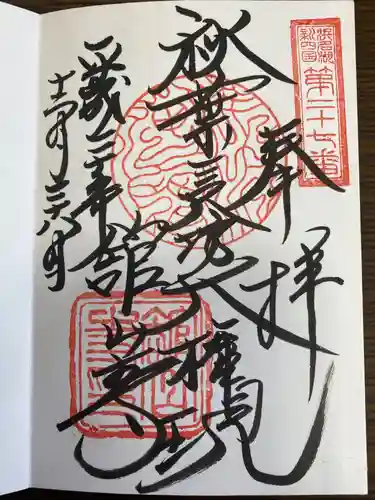 浜名湖
新四国
第二十七番
奉拝
秋葉三尺坊大権現
舘山寺
平成三十年
十二月